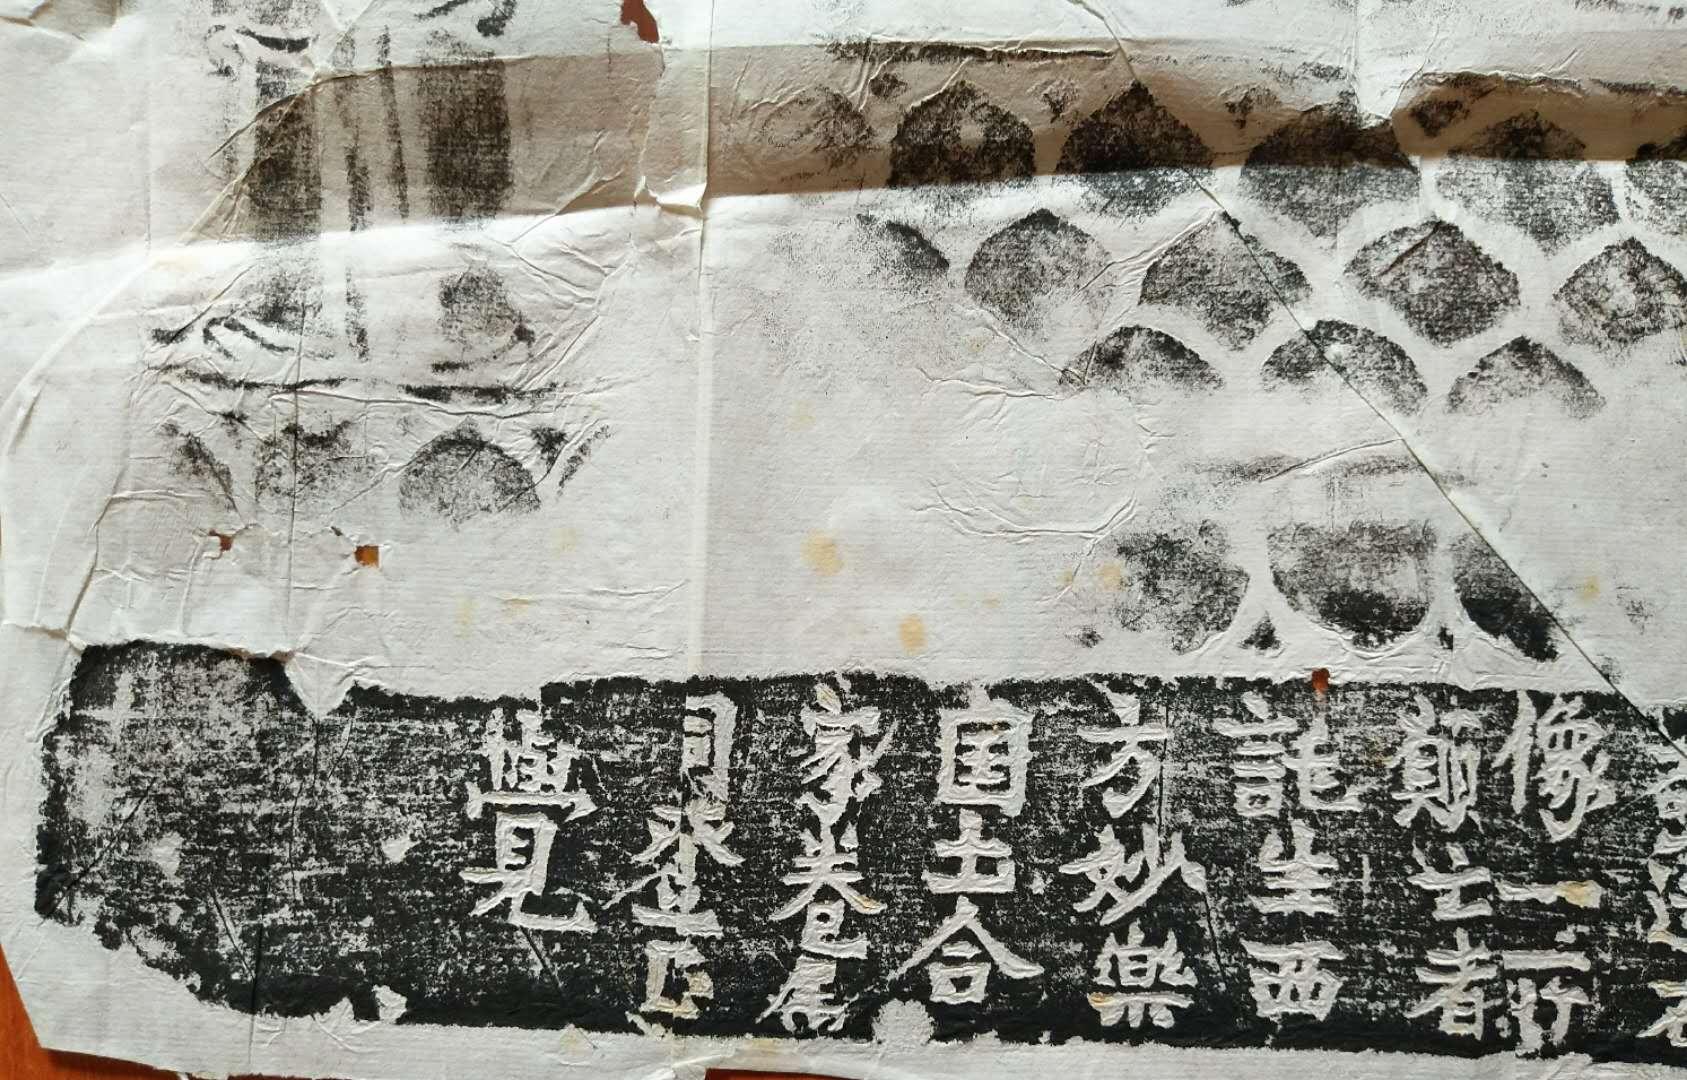 像一
願亡者
託生西
方妙樂
国土合
家眷属
同登正
覺